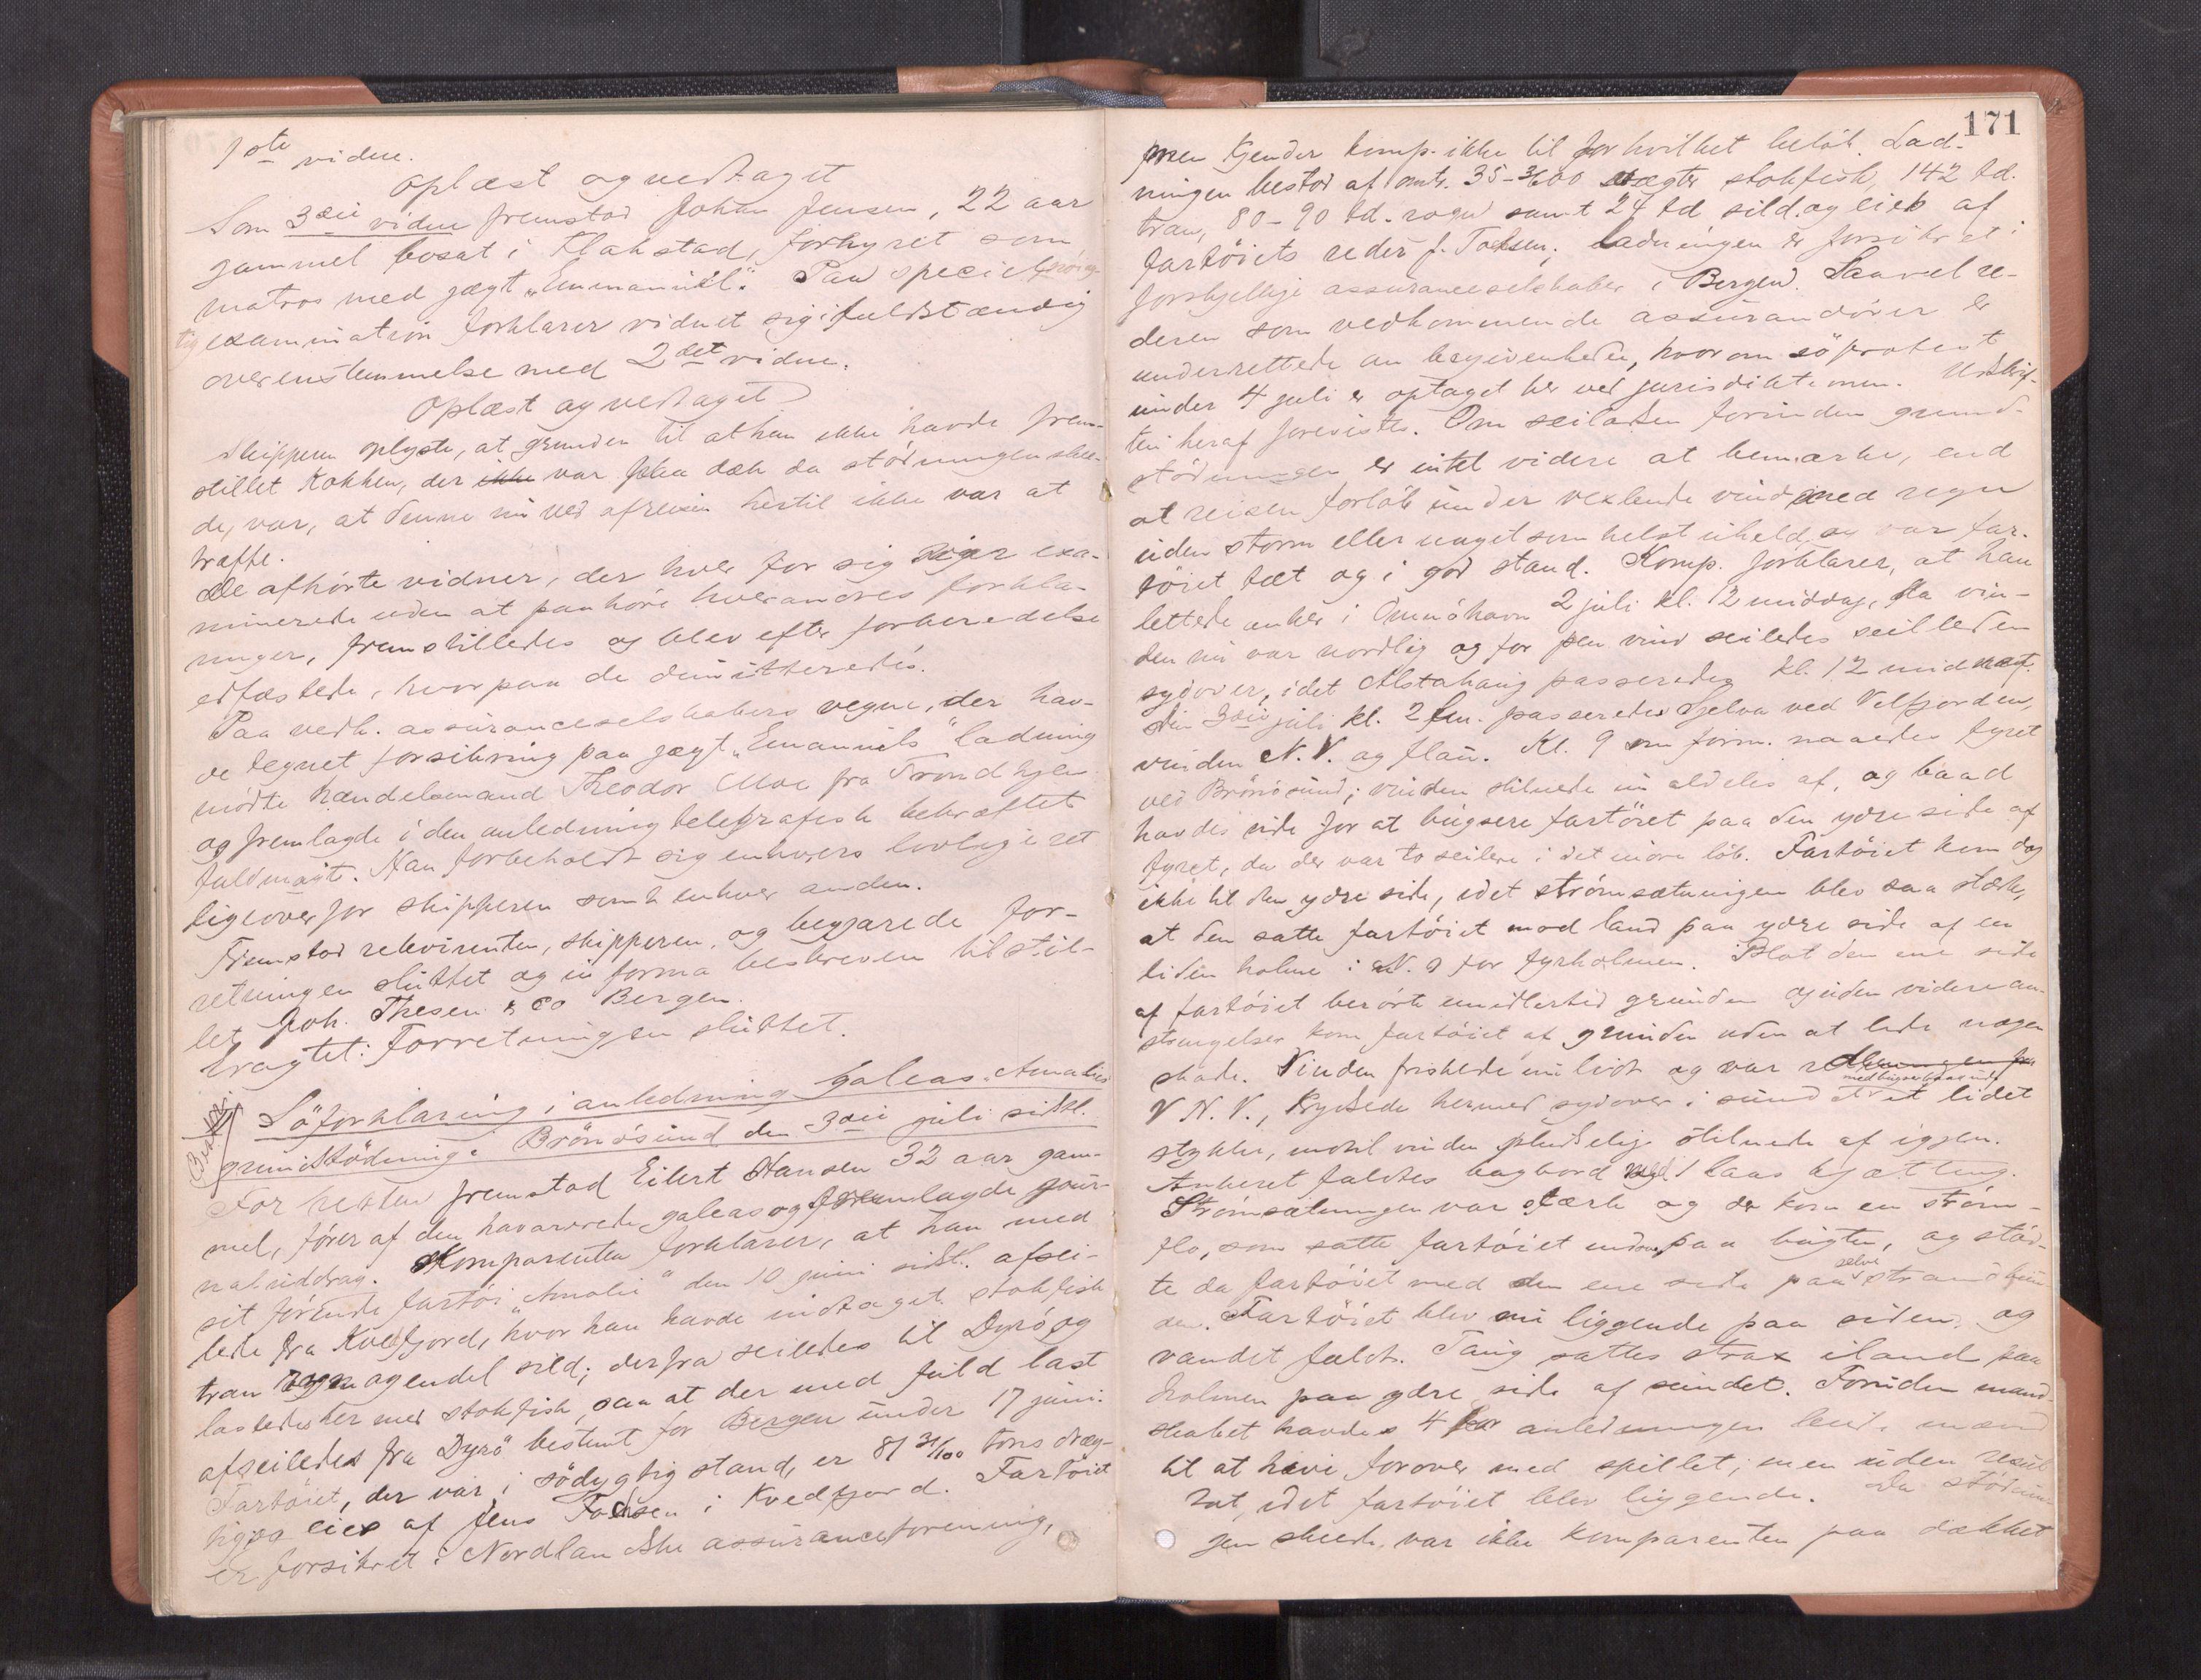 1ste vidne.
Oplæst og vedtaget
Som 3die vidne fremstod Johan Jensen, 22 aar
gammel bosat i Klakstad, forhyret som
matros med jægt „Emmanuel“. Paa speciel
examination forklarer vidnet sig i fuldstændig
overensstemmelse med 2det vidne.
Oplæst og vedtaget
Skipperen oplyste, at grunden til at han ikke havde frem-
stillet kokken, der ikke var paa dæk da stödningen skee-
de, var, at denne nu ved afreisen hertil ikke var at
træffe.
De afhörte vidner, der hver for sig examinerede uden at paahöre hverandres forkla-
ringer, fremstilledes og blev efter forberedelse
edfæstede, hvorpaa de dimitteredes.
Paa vedk. assuranceselskabers vegne, der hav-
de tegnet forsikring paa jægt „Emanuels“ ladning
mödte handelsmand Theodor Moe fra Trondhjem
og fremlagde i den anledning telegrafisk bekræftet
fuldmagt. Han forbeholdt sig enhvers lovlige ret
ligeoverfor skipperen samt enhver anden.
Fremstod rekvirenten, skipperen, og begjærede for-
retningen sluttet og in forma beskreven tilstil-
let Joh. Thesen & Co Bergen.
Eragtet: Forretningen sluttet.
Söforklaring i anledning galeas „Amalies
grundstödning i Brönösund den 3die juli sidstl.
For retten fremstod Eilert Hansen 32 aar gam-
mel, förer af den havarerede galeas og fremlagde jour-
naluddrag. Komparenten forklarer, at han med
sit förende fartöi „Amalie“ den 10 juni sidstl. afsei-
lede fra Kvedfjord, hvor han havde indtaget stokfisk
tran rogn og endel sild; derfra seiledes til Dyrö og
lastedes her med stokfisk, saa at der med fuld last
afseiledes fra Dyrö bestemt for Bergen under 17 juni.
Fartöiet, der var i södygtig stand, er 81 31/100 tons dræg-
tig og eies af Jens Todsen i Kvedfjord. Fartöiet
er forsikret i Nordlandske assuranceforening,
171
men kjender komp. ikke til for hvilket belöb. Lad-
ningen bestod af omtr. 35-3600 vægter stokfisk, 142 td.
tran, 80-90 td. rogn samt 24 td sild og eies af
fartöiets reder J. Todsen; ladningen er forsikret i
forskjellige assuranceselskaber i Bergen. Saavel re-
deren som vedkommende assurandörer er
underrettede om begivenheden, hvorom söprotest
under 4 juli er optaget her ved jurisdiktionen. Udskrif-
ten heraf forevistes. Om seiladsen forinden grund-
stödningen er intet videre at bemærke, end
at reisen forlöb under vexlende vind med regn
uden storm eller noget som helst uheld og var far-
töiet tæt og i god stand. Komp. forklarer, at han
lettede anker i havn 2 juli kl. 12 middag, da vin-
den nu var nordlig og for pen vind seiledes seilleden
sydover, idet Alstahaug passeredes kl. 12 midnat.
Den 3die juli kl. 2 fm. passeredes ved Velfjorden,
vinden N.V. og flau. Kl. 9 om form. naaedes fyret
ved Brönösund; vinden stilnede nu aldeles af, og baad
havdes ude for at bugsere fartöiet paa den ydre side af
fyret, da der var to seilere i det indre löb. Fartöiet kom dog
ikke til den ydre side, idet strömsætningen blev saa stærk,
at den satte fartöiet mod land paa ydre side af en
liden holme i N. O for fyrholmen. Blot den ene side
af fartöiet berörte imidlertid grunden og uden videre an-
strengelser kom fartöiet af grunden uden at lide nogen
skade. Vinden friskede nu lidt og var
V N. V., krydsede hermed sydover i sundet et lidet
stykke, indtil vinden pludselig stilnede af igjen.
Ankeret faldtes bagbord med 1 laas kjætting.
Strömsætningen var stærk og der kom en ström-
flo, som satte fartöiet indover paa bugten, og stöd-
te da fartöiet med den ene side paa selve strandbun
den. Fartöiet blev nu liggende paa siden, og
vandet faldt. Taug sattes strax iland paa
holmen paa ydre side af sundet. Foruden mand-
skabet havdes 4 for anledningen leiede mænd
til at hive forover med spillet, men uden resul
tat, idet fartöiet blev liggende. Da stödnin
gen skeede, var ikke komparenten paa dækket